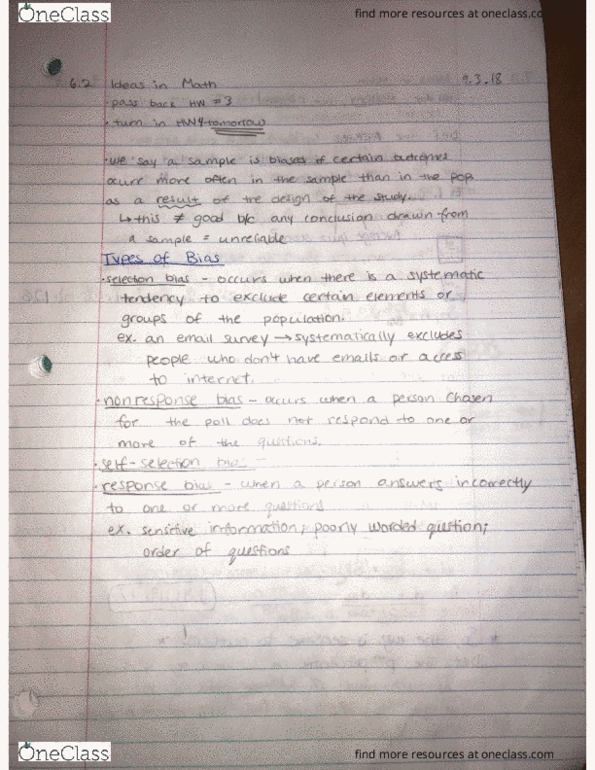 OneClass
find more resources at oneclass.co
6.2 Ideas in Math 9.3.18
· pass back HW #3
· turn in HW4 tomorrow
· we say a sample is biased if certain outcomes
occurr more often in the sample than in the pop
as a result of the design of the study.
↳ this ≠ good b/c any conclusion drawn from
a sample = unreliable
Types of Bias
· selection bias - occurs when there is a systematic
tendency to exclude certain elements or
groups of the population.
ex. an email survey → systematically excludes
people who don't have emails or access
to internet.
· nonresponse bias - occurs when a person chosen
for the poll does not respond to one or
more of the questions.
· self-selection bias
· response bias - when a person answers incorrectly
to one or more questions
ex. sensitive information; poorly worded question;
order of questions
OneClass
find more resources at oneclass.com